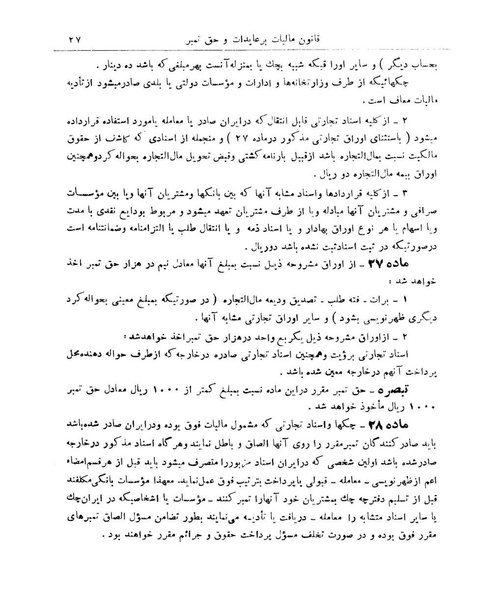 قانون مالیات بر عایدات و حق تمبر ۲۷
بحساب دیگر ) و سایر اوراقیکه شبیه بچك یا بمنزله آنست بهر مبلغی که باشد ده دینار .
چکهائیکه از طرف وزارتخانه‌ها و ادارات و مؤسسات دولتی یا بلدی صادر میشود از تأدیه
مالیات معاف است .
۲ ـ از کلیه اسناد تجارتی قابل انتقال که در ایران صادر یا معامله یا مورد استفاده قرار داده
میشود ( باستثنای اوراق تجارتی مذکور در ماده ۲۷ ) و منجمله از اسنادی که کاشف از حقوق
مالکیت نسبت بمال‌التجاره باشد از قبیل بارنامه کشتی و قبض تحویل مال‌التجاره بحواله کرد و همچنین
اوراق بیمه مال‌التجاره دو ریال .
۳ ـ از کلیه قراردادها و اسناد مشابه آنها که بین بانکها و مشتریان آنها و یا بین مؤسسات
صرافی و مشتریان آنها مبادله و یا از طرف مشتریان تعهد میشود و مربوط بودایع نقدی با مدت
و یا اسهام یا هر نوع اوراق بهادار و یا اسناد ذمه و یا انتقال طلب یا التزامنامه و ضمانتنامه است
در صورتیکه در ثبت اسناد ثبت نشده باشد دو ریال .
ماده ۲۷ ـ از اوراق مشروحه ذیل نسبت بمبلغ آنها معادل نیم در هزار حق تمبر اخذ
خواهد شد :
۱ ـ برات - فته طلب - تصدیق ودیعه مال‌التجاره ( در صورتیکه بمبلغ معینی بحواله کرد
دیگری ظهرنویسی بشود ) و سایر اوراق تجارتی مشابه آنها .
۲ ـ از اوراق مشروحه ذیل یکربع واحد در هزار حق تمبر اخذ خواهد شد :
اسناد تجارتی برؤیت و همچنین اسناد تجارتی صادره در خارجه که از طرف حواله دهنده محل
پرداخت آنهم در خارجه معین شده باشد .
تبصره ـ حق تمبر مقرر در این ماده نسبت بمبلغ کمتر از ۱۰۰۰ ریال معادل حق تمبر
۱۰۰۰ ریال مأخوذ خواهد شد .
ماده ۲۸ ـ چکها و اسناد تجارتی که مشمول مالیات فوق بوده و در ایران صادر شده باشد
باید صادر کنندگان تمبر مقرر را روی آنها الصاق و باطل نمایند و هر گاه اسناد مذکور در خارجه
صادر شده باشد اولین شخصی که در ایران اسناد مزبور را متصرف میشود باید قبل از هر قسم امضاء
اعم از ظهرنویسی - معامله - قبولی یا پرداخت بترتیب فوق عمل نماید. معهذا مؤسسات بانکی مکلفند
قبل از تسلیم دفترچه چك بمشتریان خود آنها را تمبر کنند ـ مؤسسات یا اشخاصیکه در ایران چك
یا سایر اسناد متشابه را معامله ـ دریافت یا تأدیه می‌نمایند بطور تضامن مسؤل الصاق تمبرهای
مقرر فوق بوده و در صورت تخلف مسؤل پرداخت حقوق و جرائم مقرر خواهند بود .